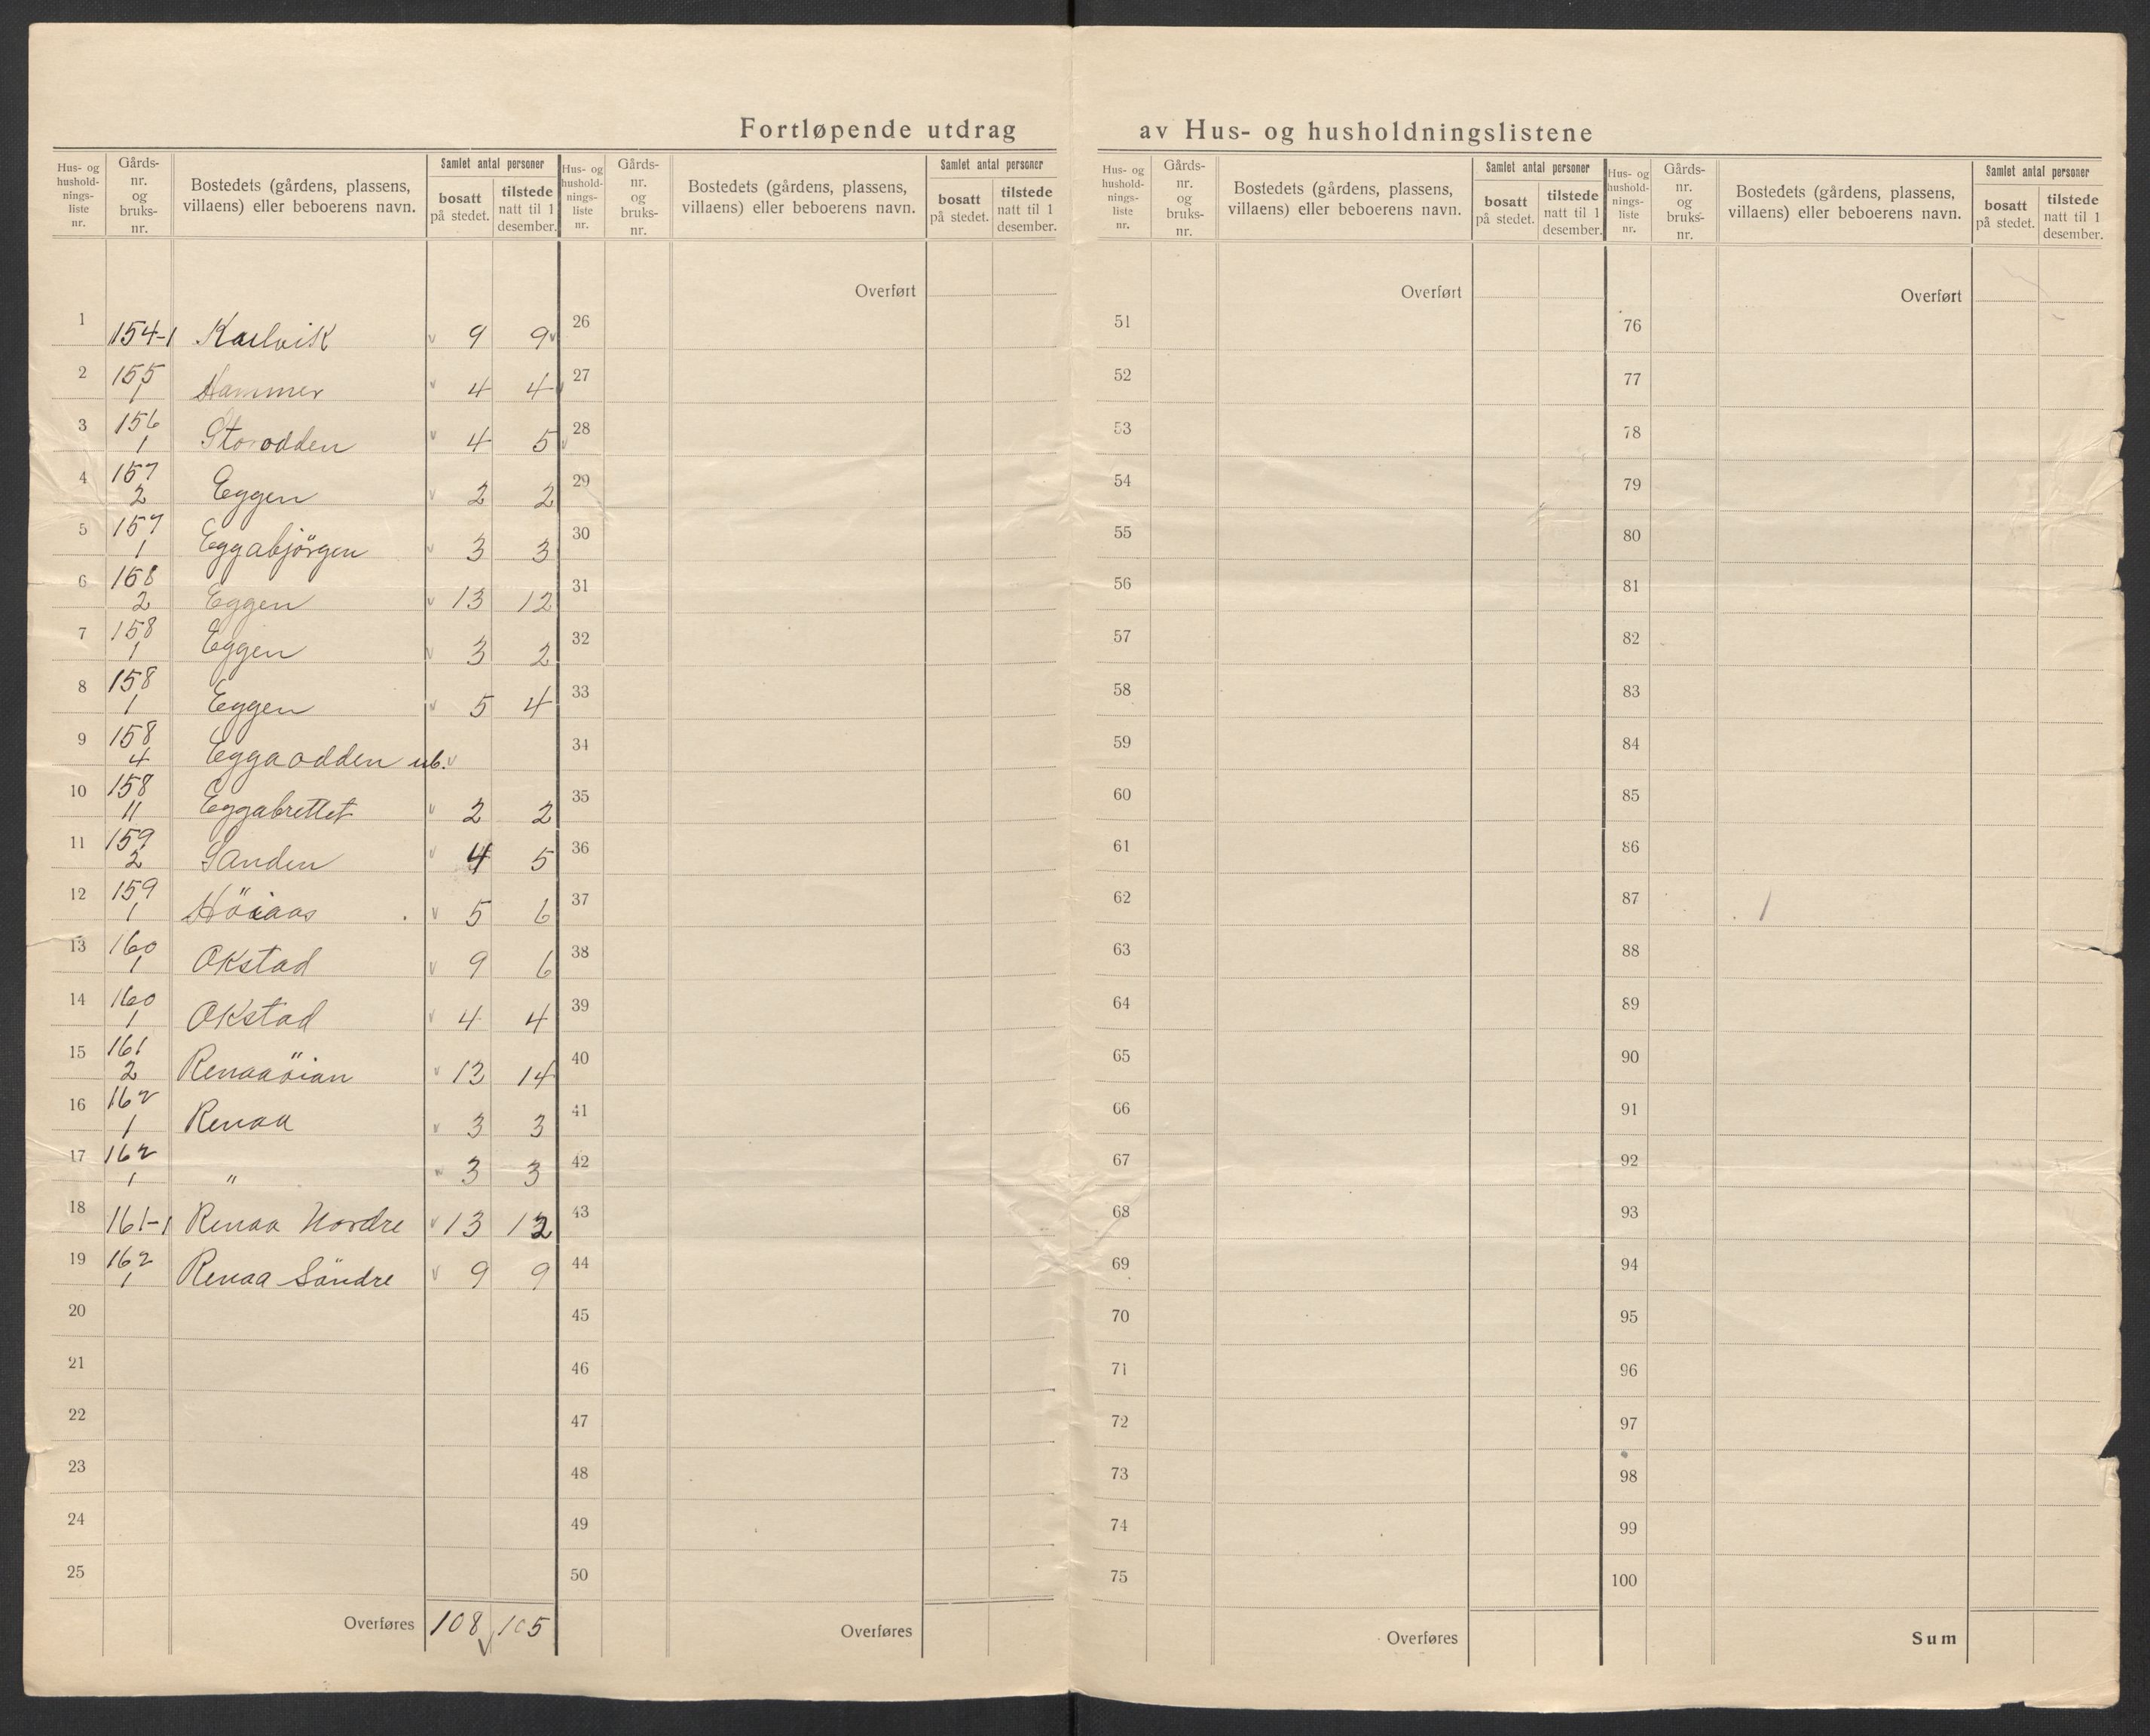 Fortløpende utdrag av Hus- og husholdningslistene
Hus- og husholdningsliste nr. | Gårdsnr. og bruksnr. | Bostedets (gårdens, plassens, villaens) eller beboerens navn. | Samlet antal personer bosatt på stedet. | tilstede natt til 1 desember.
1 154-1 Kaelvik v 9 9 v
2 155 1 Hammer v 4 4 v
3 156 1 Storodden v 4 5 v
4 157 2 Eggen v 2 2
5 157 1 Eggabjörgen v 3 3
6 158 2 Eggen v 13 12
7 158 1 Eggen v 3 2
8 158 1 Eggen v 5 4
9 158 4 Eggaodden ub. v
10 158 11 Eggabrettet v 2 2
11 159 2 Sanden v 4 5
12 159 1 Höiaas v 5 6
13 160 1 Okstad v 9 6
14 160 1 Okstad v 4 4
15 161 2 Renaaöian v 13 14
16 162 1 Renaa v 3 3
17 162 1 " v 3 3
18 161-1 Renaa Nordre v 13 12
19 162 1 Renaa Söndre v 9 9
20
21
22
23
24
25
Overføres 108 v 105
Hus- og husholdningsliste nr. | Gårdsnr. og bruksnr. | Bostedets (gårdens, plassens, villaens) eller beboerens navn. | Samlet antal personer bosatt på stedet. | tilstede natt til 1 desember.
Overført
26
27
28
29
30
31
32
33
34
35
36
37
38
39
40
41
42
43
44
45
46
47
48
49
50
Overføres
Hus- og husholdningsliste nr. | Gårdsnr. og bruksnr. | Bostedets (gårdens, plassens, villaens) eller beboerens navn. | Samlet antal personer bosatt på stedet. | tilstede natt til 1 desember.
Overført
51
52
53
54
55
56
57
58
59
60
61
62
63
64
65
66
67
68
69
70
71
72
73
74
75
Overføres
Hus- og husholdningsliste nr. | Gårdsnr. og bruksnr. | Bostedets (gårdens, plassens, villaens) eller beboerens navn. | Samlet antal personer bosatt på stedet. | tilstede natt til 1 desember.
Overført
76
77
78
79
80
81
82
83
84
85
86
87
88
89
90
91
92
93
94
95
96
97
98
99
100
Sum